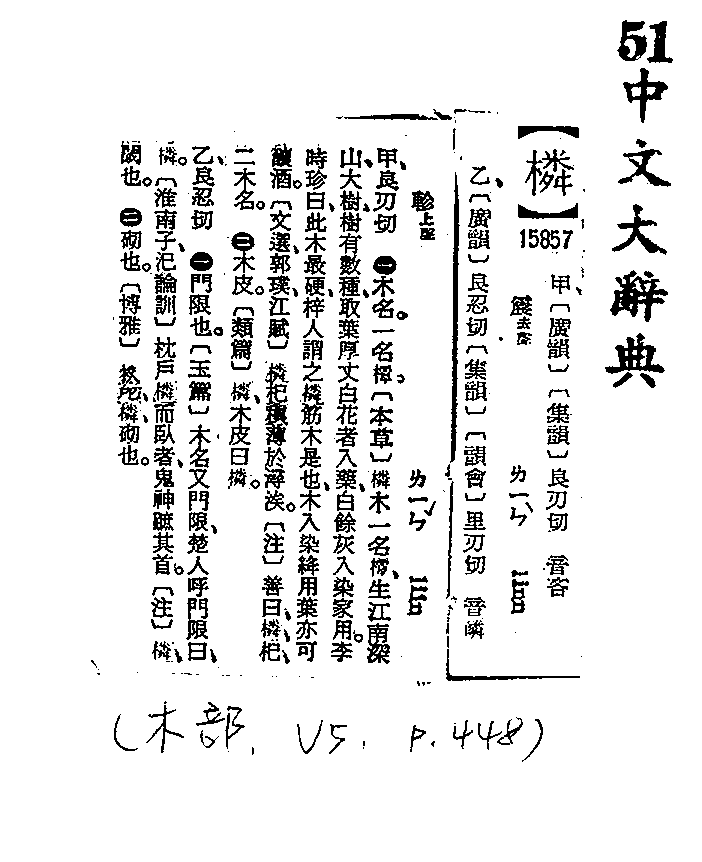 51中文大辭典
【橉】
15857
甲、〔廣韻〕〔集韻〕良刃切 音吝
震去聲 ㄌㄧㄣˋ lin
乙、〔廣韻〕良忍切〔集韻〕〔韻會〕里刃切 音嶙
軫上聲 ㄌㄧㄣˇ lin
甲、良刃切 ㊀木名。一名橝。〔本草〕橉木一名橝、生江南深
山、大樹、樹有數種、取葉厚丈白花者入藥、白餘灰入染家用。李
時珍曰、此木最硬、梓人謂之橉筋木是也、木入染絳用葉亦可
釀酒。〔文選、郭璞、江賦〕橉杞稹薄於潯涘。〔注〕善曰、橉、杞、
二木名。㊁木皮。〔類篇〕橉、木皮曰橉。
乙、良忍切 ㊀門限也。〔玉篇〕木名又門限、楚人呼門限曰
橉。〔淮南子、氾論訓〕枕戶橉而臥者、鬼神蹠其首。〔注〕橉、
閾也。㊁砌也。〔博雅〕橉、砌也。
(木部, V5, p.448)